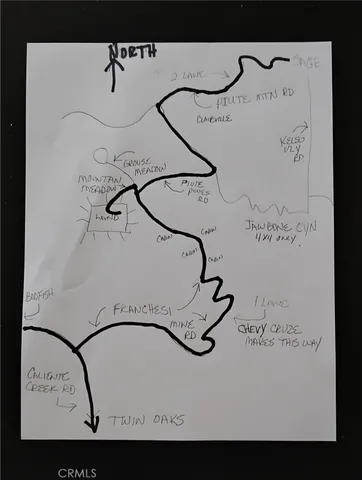 NORTH
SAGE
2 LANE
PIUTE MTN RD
CLARAVILLE
KELSO
VLY
RD
GROUSE
MEADOW
MOUNTAIN
MEADOW
PIUTE
PINES
RD
LAND
JAWBONE CYN
4X4 ONLY
CABIN
CABIN
CABIN
CABIN
BODFISH
FRANCHESI
MINE
RD
1 LANE
CHEVY CRUZE
MAKES THIS WAY
CALIENTE
CREEK RD
TWIN OAKS
CRMLS